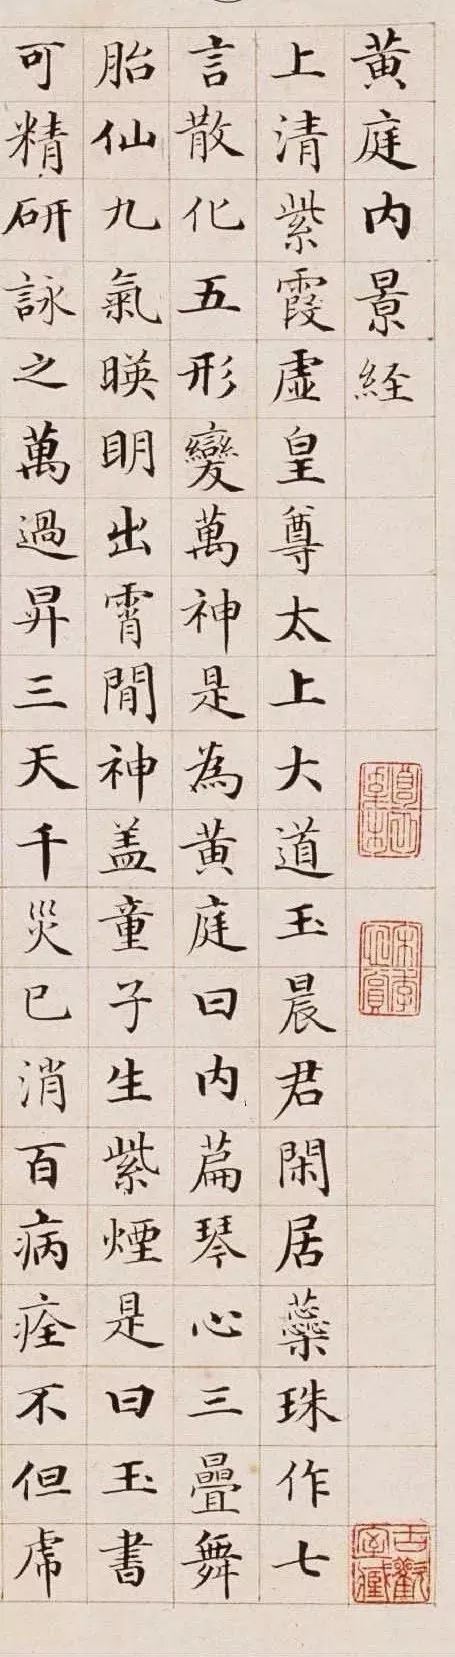 黄庭内景経
上清紫霞虛皇尊太上大道玉晨君閑居蘂珠作七
言散化五形變萬神是為黄庭曰内萹琴心三疊舞
胎仙九氣暎明出霄間神盖童子生紫煙是曰玉書
可精研詠之萬過昇三天千災已消百病痊不但虎